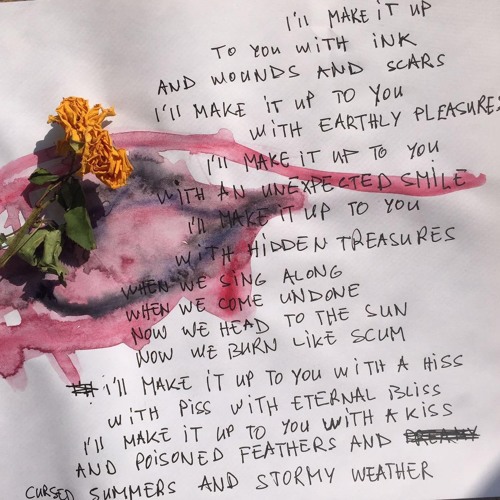 I'll MAKE iT UP
TO YOU WiTH iNK
AND WOUNDS AND SCARS
I'll MAKE iT UP TO YOU
WiTH EARTHLY PLEASURES
I'll MAKE iT UP TO YOU
WiTH AN UNEXPECTED SMILE
I'll MAKE iT UP TO YOU
WiTH HIDDEN TREASURES
WHEN WE SING ALONG
WHEN WE COME UNDONE
NOW WE HEAD TO THE SUN
NOW WE BURN LIKE SCUM
I'll MAKE iT UP TO YOU WiTH A HiSS
WiTH PiSS WiTH ETERNAL BLiSS
I'll MAKE iT UP TO YOU WiTH A KiSS
AND POISONED FEATHERS AND
CURSED SUMMERS AND STORMY WEATHER